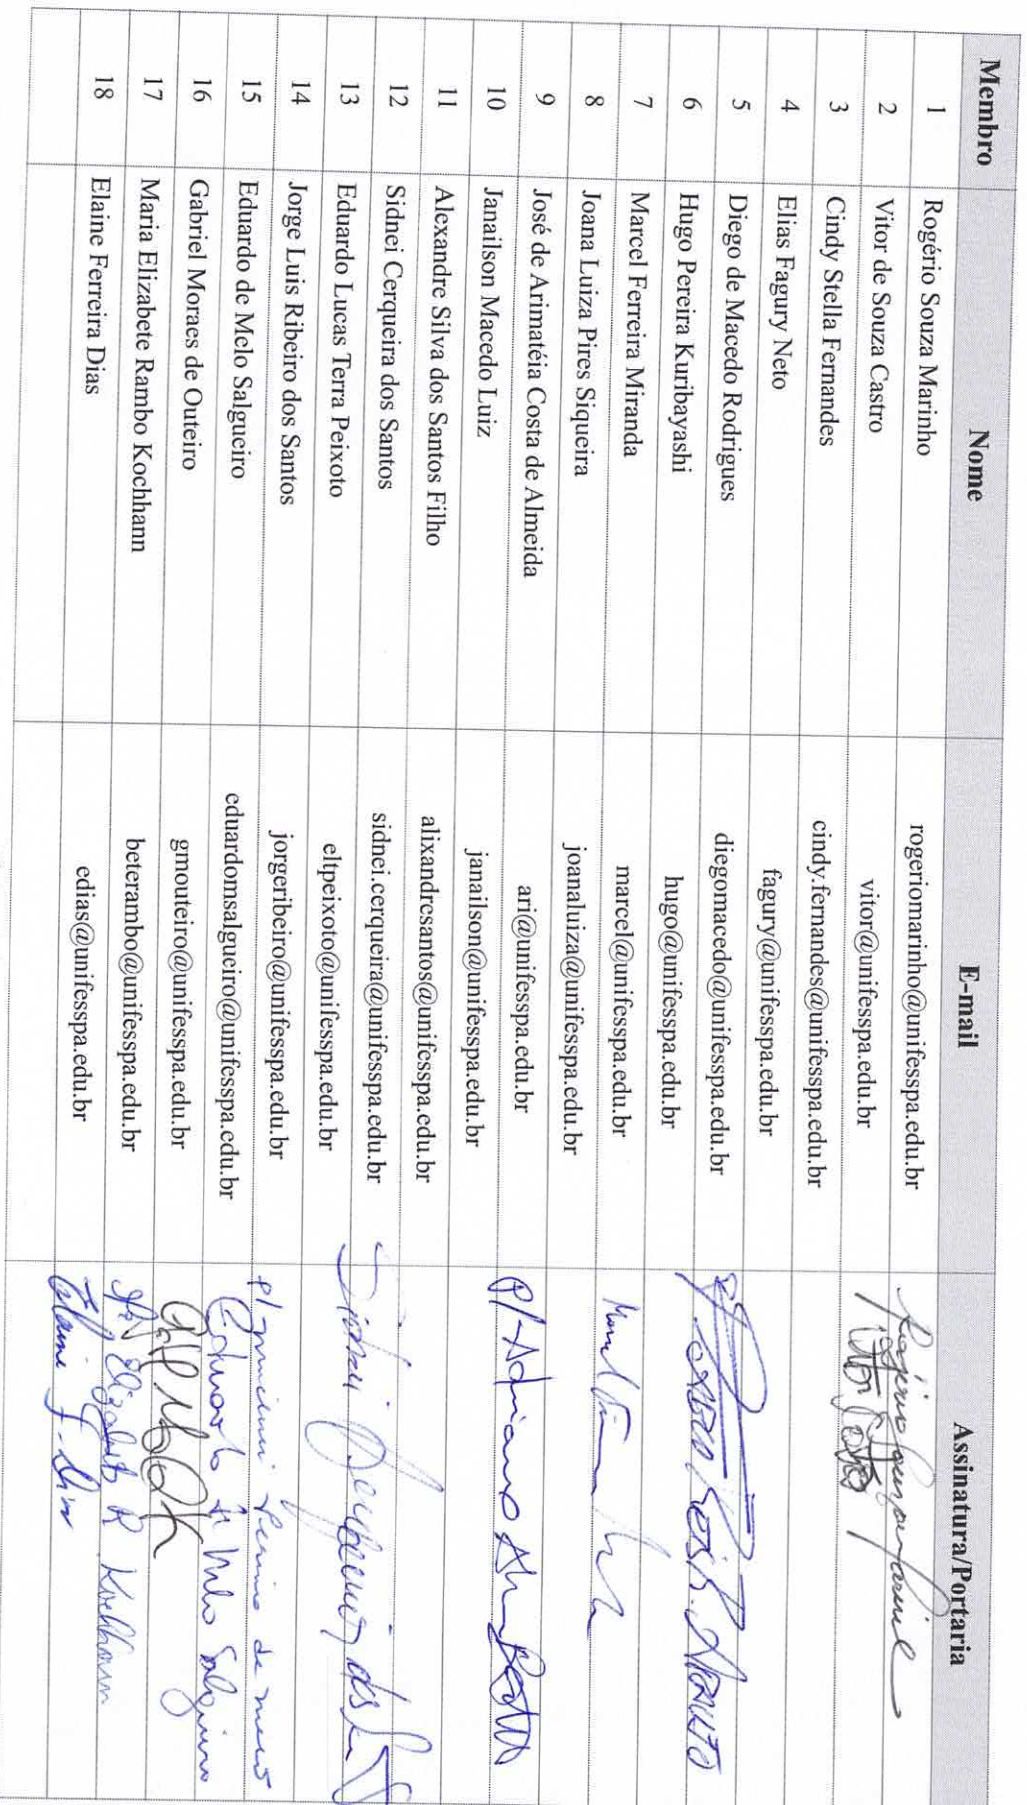 Membro Nome E-mail Assinatura/Portaria
1 Rogério Souza Marinho rogeriomarinho@unifesspa.edu.br
2 Vitor de Souza Castro vitor@unifesspa.edu.br Vitor Castro
3 Cindy Stella Fernandes cindy.fernandes@unifesspa.edu.br
4 Elias Fagury Neto fagury@unifesspa.edu.br
5 Diego de Macedo Rodrigues diegomacedo@unifesspa.edu.br
6 Hugo Pereira Kuribayashi hugo@unifesspa.edu.br
7 Marcel Ferreira Miranda marcel@unifesspa.edu.br
8 Joana Luiza Pires Siqueira joanaluiza@unifesspa.edu.br
9 José de Arimatéia Costa de Almeida ari@unifesspa.edu.br p/ Adriano
10 Janailson Macedo Luiz janailson@unifesspa.edu.br
11 Alexandre Silva dos Santos Filho alixandresantos@unifesspa.edu.br
12 Sidnei Cerqueira dos Santos sidnei.cerqueira@unifesspa.edu.br Sidnei Cerqueira dos
13 Eduardo Lucas Terra Peixoto eltpeixoto@unifesspa.edu.br
14 Jorge Luis Ribeiro dos Santos jorgeribeiro@unifesspa.edu.br p/
15 Eduardo de Melo Salgueiro eduardomsalgueiro@unifesspa.edu.br Eduardo de Melo Salgueiro
16 Gabriel Moraes de Outeiro gmouteiro@unifesspa.edu.br
17 Maria Elizabete Rambo Kochhann beterambo@unifesspa.edu.br Elizabete R Kochhann
18 Elaine Ferreira Dias edias@unifesspa.edu.br Elaine F. Dias